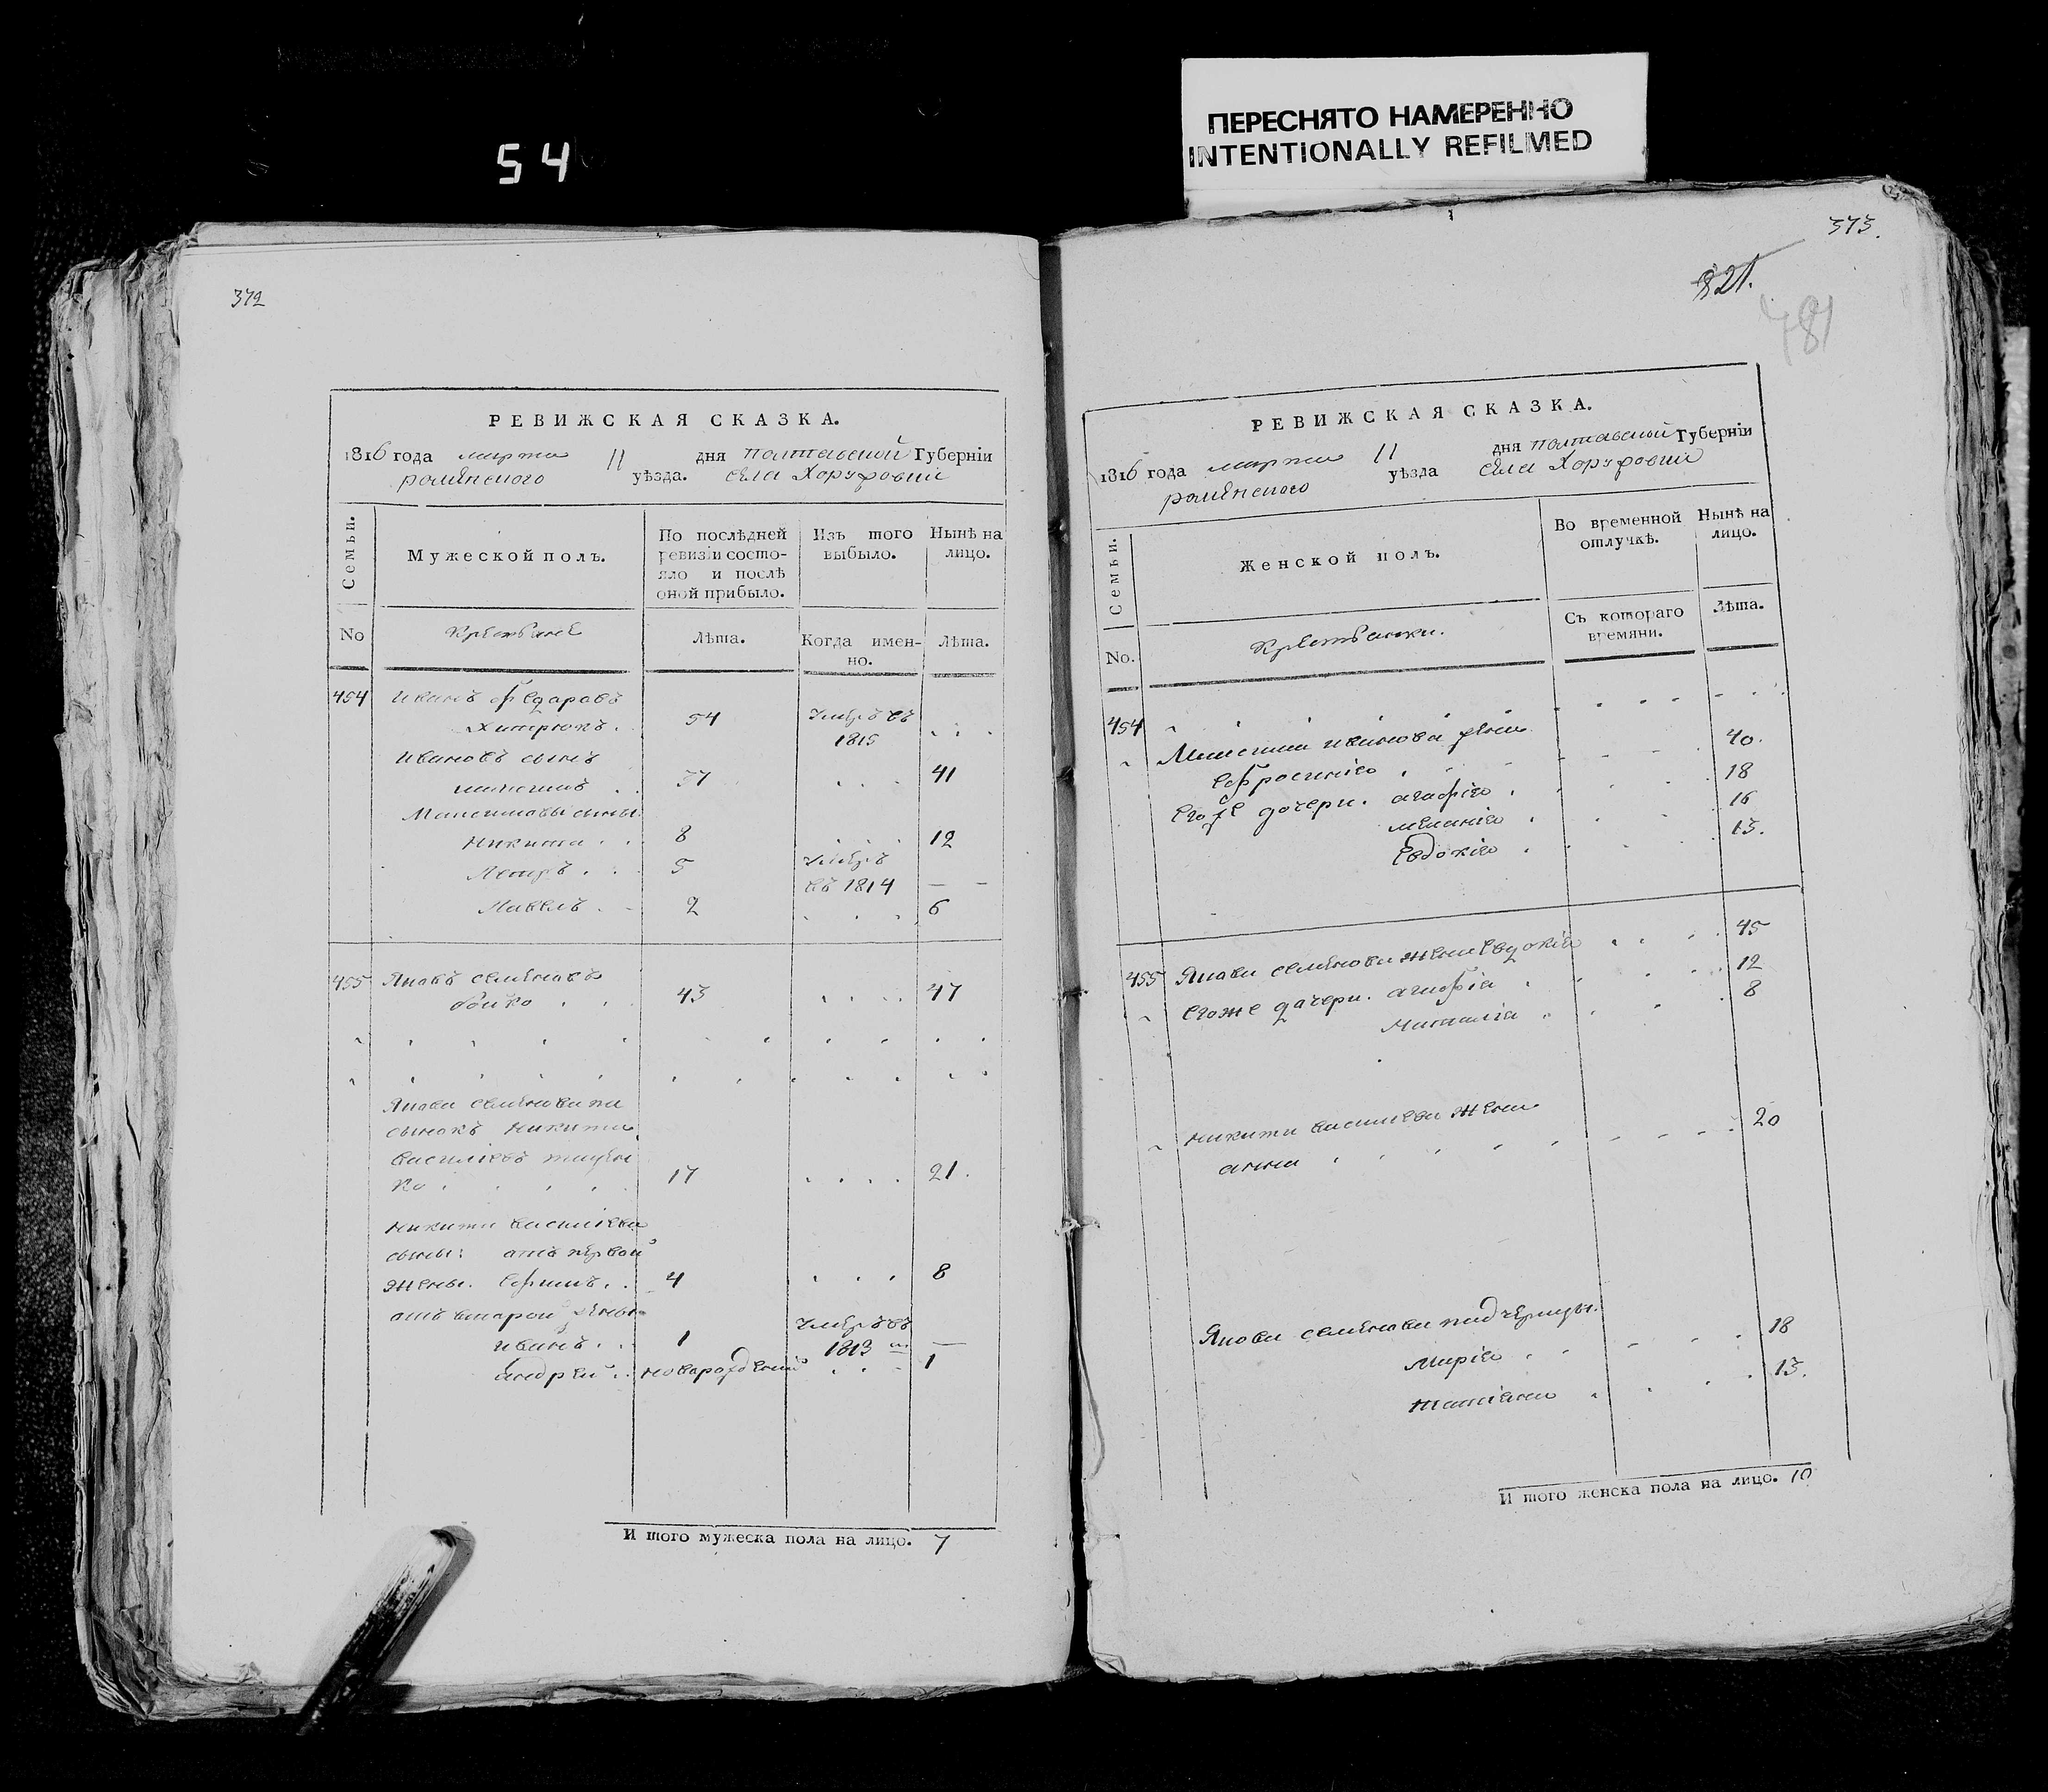 54
ПЕРЕСНЯТО НАМЕРЕННО
INTENTIONALLY REFILMED
372
РЕВИЖСКАЯ СКАЗКА.
1816 года марта 11 дня Полтавской Губернїи
роменского уѣзда. села Хоружовки
Семьи.
Мужеской полъ.
По послѣдней ревизїи состояло и послѣ оной прибыло.
Изъ того выбыло.
Нынѣ на лицо.
No
Крестьяне
Лѣта.
Когда именно.
Лѣта.
454 Иванъ Федаравъ
54 Умеръ въ
1815
Ивановъ сынъ
максимъ 37 41
Максимовы сыны
Никита 8 12
Петръ 5 Умеръ
въ 1814 —
Павелъ 2 6
455 Яковъ семеновъ
бойко 43 47
Якова семенова па
сынокъ Никита
василіевъ
ко 17 21.
Никиты василіева
сыны: атъ первой
жены. Ефимъ 4 8
атъ втарой жены
иванъ 1 Умеръ въ
1813 м —
Андрей новарожденный 1
И того мужеска пола на лицо. 7
373.
821.
781
РЕВИЖСКАЯ СКАЗКА.
1816 года марта 11 дня полтавской Губернїи
роменского уѣзда села Хоружовки
Семьи.
Женской полъ.
Во временной отлучкѣ.
Нынѣ на лицо.
No.
Крестьянки.
Съ котораго времяни.
Лѣта.
454
Максима иванова жена
Ефросинія 40.
Егоже дочери. агафія 18
меланія 16
Евдокія 13.
455 Якова семенова жена Евдокія 45
Егоже дачери. агафія 12
Наталія 8
Никиты василіева жена
анна 20
Якова семенова падчерицы.
марія 18
татіана 13.
И того женска пола на лицо. 10